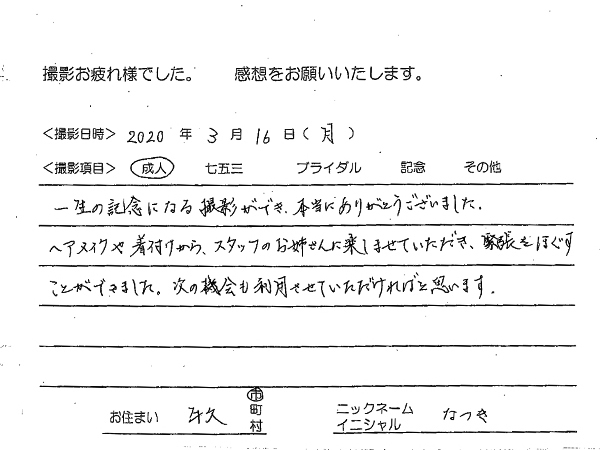 撮影お疲れ様でした。 感想をお願いいたします。
<撮影日時> 2020 年 3 月 16 日 ( 月 )
<撮影項目> 成人 七五三 ブライダル 記念 その他
一生の記念になる撮影ができ、本当にありがとうございました。
ヘアメイクや着付けから、スタッフのお姉さんに楽しませていただき、緊張をほぐす
ことができました。次の機会も利用させていただければと思います。
お住まい 牛久 市 町 村 ニックネーム イニシャル なつき